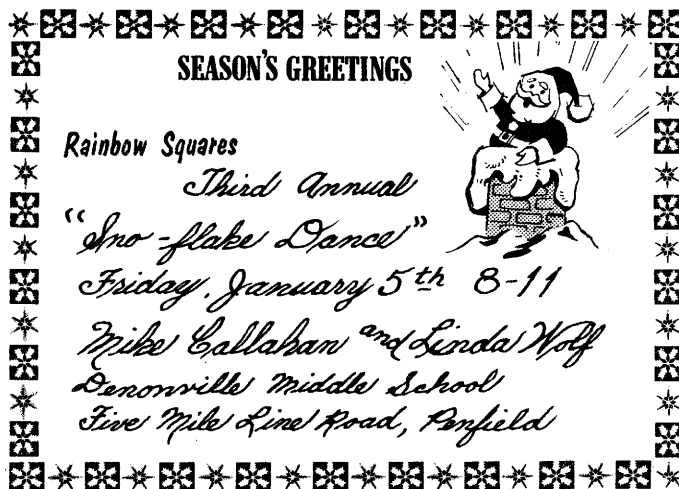 SEASON'S GREETINGS
Rainbow Squares
Third Annual
"Sno-flake Dance"
Friday, January 5th 8-11
Mike Callahan and Linda Wolf
Denonville Middle School
Five Mile Line Road, Penfield